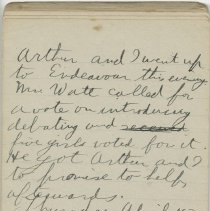 Arthur and I went up
to Endeavour this evening
Mr Watt called for
a vote on introducing
debating and
five girls voted for it.
He got Arthur and I
to promise to help
afterwards.